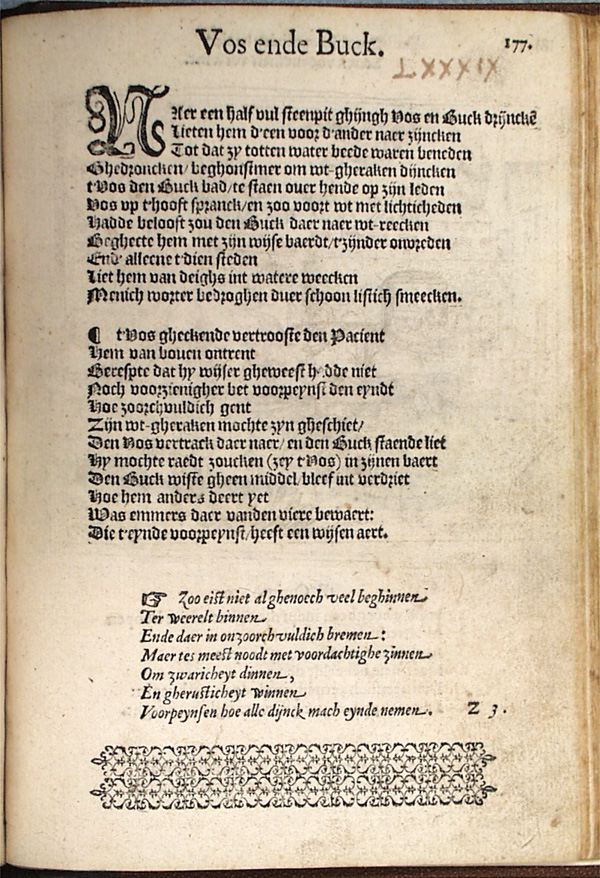 Vos ende Buck.
177.
LXXXIX
NAer een half vul steenpit ghijngh Vos en Buck drijnckē
Lieten hem d'een voor d'ander naer zijncken
Tot dat zy totten water beede waren beneden
Ghedroncken/ beghonstmer om wt-gheraken dijncken
t'Vos den Buck bad/ te staen over hende op zijn leden
Vos vp t'hooft spranck/ en zoo voort wt met lichticheden
Hadde belooft zou den Buck daer naer wt-reecken
Beghecte hem met zijn wijse baerdt/ t'zijnder onvreden
End' alleene t'dien steden
Liet hem van deighs int watere weecken
Menich worter bedroghen duer schoon listich smeecken.
¶ t'Vos gheckende vertrooste den Pacient
Hem van boven ontrent
Berespte dat hy wijser gheweest hadde niet
Noch voorzienigher bet voorpeynst den eyndt
Hoe zoorchvuldich gent
Zijn wt-gheraken mochte zyn gheschiet/
Den Vos vertrack daer naer/ en den Buck staende liet
Hy mochte raedt zoucken (zey t'Vos) in zijnen baert
Den Buck wiste gheen middel/ bleef int verdriet
Hoe hem anders deert yet
Was emmers daer vanden viere bewaert:
Die t'eynde voorpeynst/ heeft een wijsen aert.
☞ Zoo eist niet al ghenoech veel beghinnen
Ter weerelt binnen
Ende daer in onzoorchvuldich bremen:
Maer tes meest noodt met voordachtighe zinnen
Om zwaricheyt dinnen,
En gherusticheyt winnen
Voorpeynsen hoe alle dijnck mach eynde nemen. Z 3.